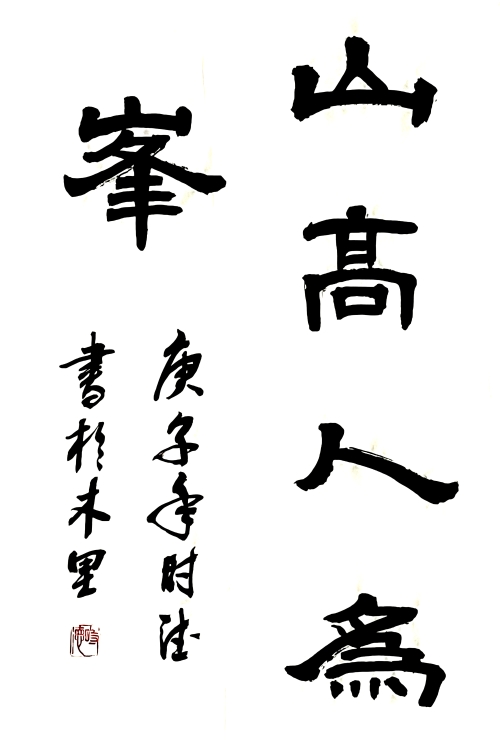 山高人為
峯
庚子年时法
書於木里